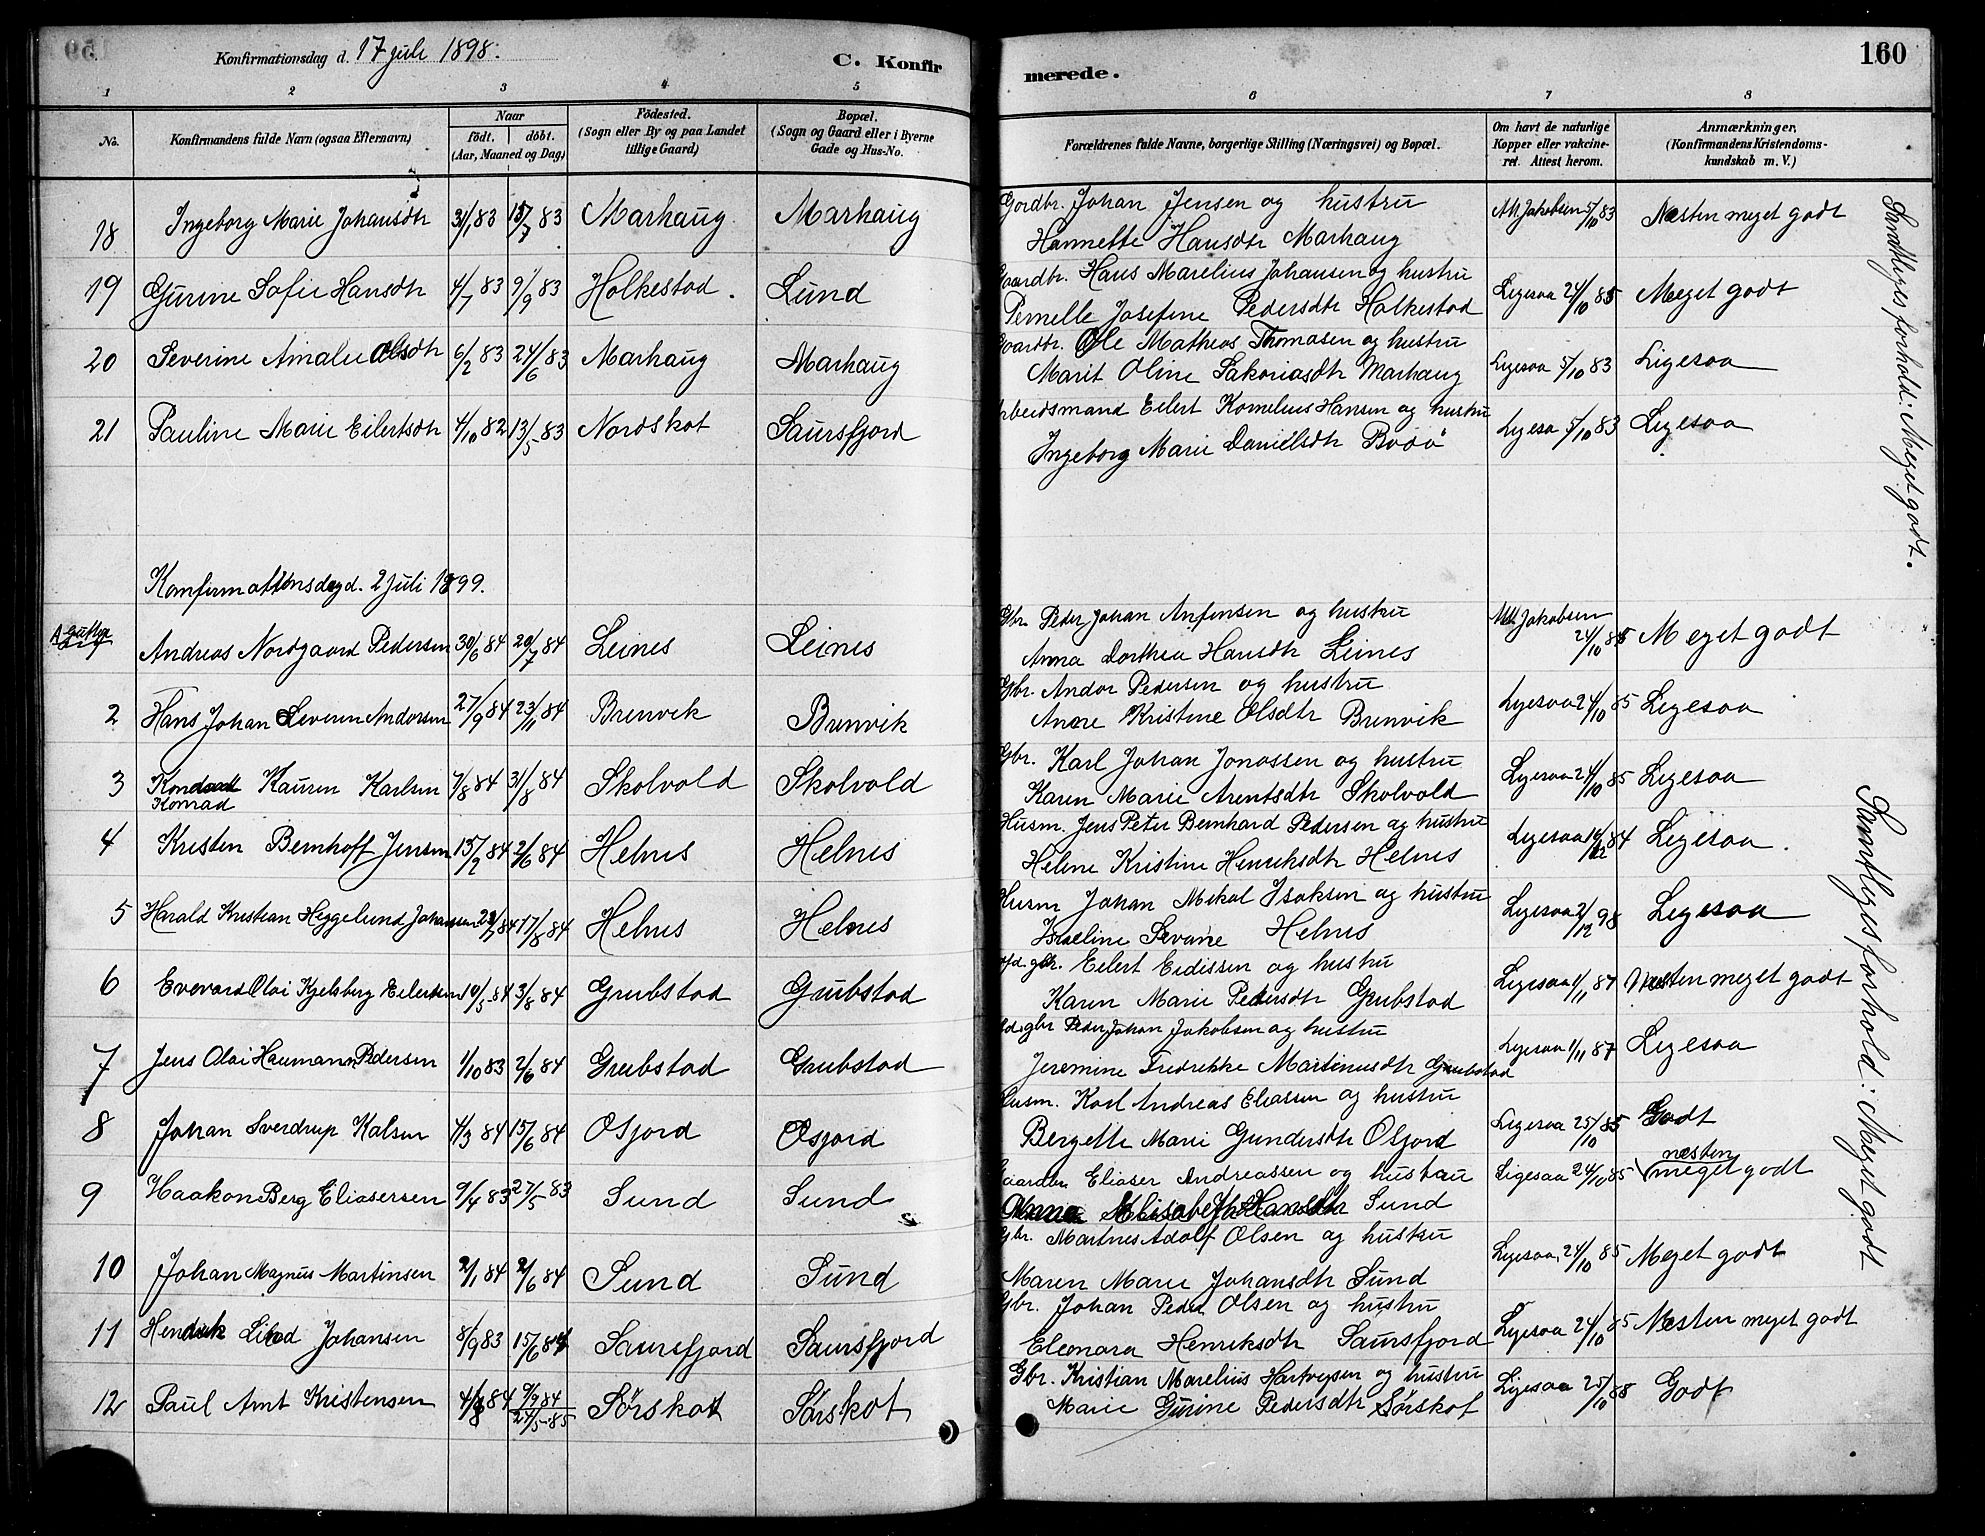 Konfirmationsdag d. 17 juli 1898. C. Konfirmerede. 160
1 2 3 4 5 6 7 8
No. Konfirmandens fulde Navn (ogsaa Efternavn) Naar født. døbt. (Aar, Maaned og Dag) Fødested. (Sogn eller By og paa Landet tillige Gaard) Bopæl. (Sogn og Gaard eller i Byerne Gade og Hus-No. Forældrenes fulde Navne, borgerlige Stilling (Næringsvei) og Bopæl. Om havt de naturlige Kopper eller vakcineret. Attest herom. Anmærkninger. (Konfirmandens Kristendomskundskab m. V.)
18 Ingeborg Marie Johansdtr 31/1 83 15/7 83 Marhaug Marhaug Gordbr. Johan Jensen og hustru
Hannette Hansdtr Marhaug
M Jakobsen 5/10 83 Næsten meget godt
19 Gurine Sofie Hansdtr 4/7 83 9/9 83 Holkestad. Lund Gaardbr. Hans Marelius Johansen og hustru
Pernelle Josefine Pedersdtr Holkestad
Ligesaa 24/10 85 Meget godt
20 Severine Amalie Olsdtr 6/2 83 24/6 83 Marhaug Marhaug Gaardbr. Ole Mathias Thomasen og hustru
Marit Oline Sakariasdtr Marhaug
Ligesaa 5/10 83 Ligesaa
21 Pauline Marie Eilertsdtr 4/10 82 13/5 83 Nordskot Saursfjord Arbeidsmand Eilert Kornelius Hansen og hustru
Ingeborg Marie Danielsdtr Bodø
Ligesa 5/10 83 Ligesaa
Samtliges forhold: Meget godt.
Konfirmationsdag d. 2 juli 1899.
A Gutter
Andreas Nordgaard Pedersen 30/6 84 20/7 84 Leines Leines Gbr. Peder Johan Anfensen og hustru
Anna Dorthea Hansdtr Leines
M Jakobsen 24/10 85 Meget godt
2 Hans Johan Severin Andersen 27/9 84 23/11 84 Brenvik Brenvik Gbr. Andor Pedersen og hustru
Kristine Olsdtr Brenvik
Ligesaa 24/10 85 Ligesaa
3 Konrad Kauren Karlsen 7/8 84 31/8 84 Skolvold Skolvold Gbr. Karl Johan Jonassen og hustru
Karen Marie Arentsdtr Skolvold
Ligesaa 24/10 85 Ligesaa
4 Kristen Bernhoff Jensen 15/2 84 2/6 84 Helnes Helnes Husm. Jens Peter Bernhard Pedersen og hustru
Helene Kristine Henriksdtr Helnes
Ligesaa 10/12 84 Ligesaa.
5 Harald Kristian Heggelund Johansen 84 17/8 84 Helnes Helnes Husm Johan Mekal Isaksen og hustru
Israeline Helnes
Ligesaa 2/12 98 Ligesaa
6 Evevard Olai Kjelsberg Eilertsen 10/5 84 3/8 84 Grubstad Grubstad gbr. Eilert Eidissen og hustru
Karen Marie Pedersdtr Grubstad
Ligesaa 1/11 87 Næsten meget godt
7 Jens Olai Haumann Pedersen 1/10 83 2/6 84 Grubstad Grubstad gbr Peder Johan Jakobsen og hustru
Jeremine Fredrikke Martinusdtr Grubstad
Ligesaa 1/11 87 Ligesaa
8 Johan Sverdrup Kalsen 4/3 84 15/6 84 Osjord Osjord Husm. Karl Andreas Eliassen og hustru
Bergette Marie Gundersdtr Osjord
Ligesaa 25/10 85 Godt
9 Haakon Berg Eliasersen 9/4 83 27/5 83 Sund Sund Gaardbr. Eliaser Andreassen og hustru
Anna Elisabeth Hansdtr Sund
Ligesaa 24/10 85 næsten meget godt
10 Johan Magnus Martinsen 2/1 84 2/6 84 Sund Sund Gbr. Martnes Adolf Olsen og hustru
Maren Marie Johansdtr Sund
Ligesaa, 24/10 85 Meget godt
11 Hendrik Johansen 8/9 83 15/6 84 Saursfjord Saursfjord Gbr. Johan Peder Olsen og hustru
Eleonora Henriksdtr Saursfjord
Ligesaa 24/10 85 Næsten meget godt
12 Paul Arnt Kristensen 9/9 84 24/5 85 Sørskot Sørskot Gbr. Kristian Marelius Hartvigsen og hustru
Marie Gurine Pedersdtr Sørskot
Ligesaa 25/10 85 Godt
Samtliges forhold: Meget godt